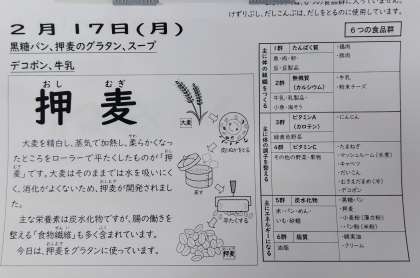 けずりぶし、だしこんぶは、だしをとるのに使用しています。
2月17日(月)
黒糖パン、押麦のグラタン、スープ
デコポン、牛乳
おし むぎ
押麦
大麦
大麦を精白し、蒸気で加熱し、柔らかくなっ
たところをローラーで平たくしたものが「押
麦」です。大麦はそのままでは水を吸いにく
く、消化がよくないため、押麦が開発されまし
た。
主な栄養素は炭水化物ですが、腸の働きを
整える「食物繊維」も多く含まれています。
今日は、押麦をグラタンに使っています。
蒸す
平たくする
押麦
6つの食品群
主に体の組織をつくる
1群 たんぱく質
魚・肉・卵・
豆・豆製品
・鶏肉
・豚肉
2群 無機質
(カルシウム)
牛乳・乳製品・
小魚・海そう
・牛乳
・粉末チーズ
主に体の調子を整える
3群 ビタミンA
(カロテン)
緑黄色野菜
・にんじん
4群 ビタミンC
その他の野菜・果物
・たまねぎ
・マッシュルーム(水煮)
・キャベツ
・だいこん
・むきえだまめ(冷)
・デコポン
主にエネルギーになる
5群 炭水化物
米・パン・めん・
いも・砂糖
・黒糖パン
・押麦
・小麦粉(薄力粉)
・パン粉(米粉)
6群 脂質
油脂
・綿実油
・クリーム